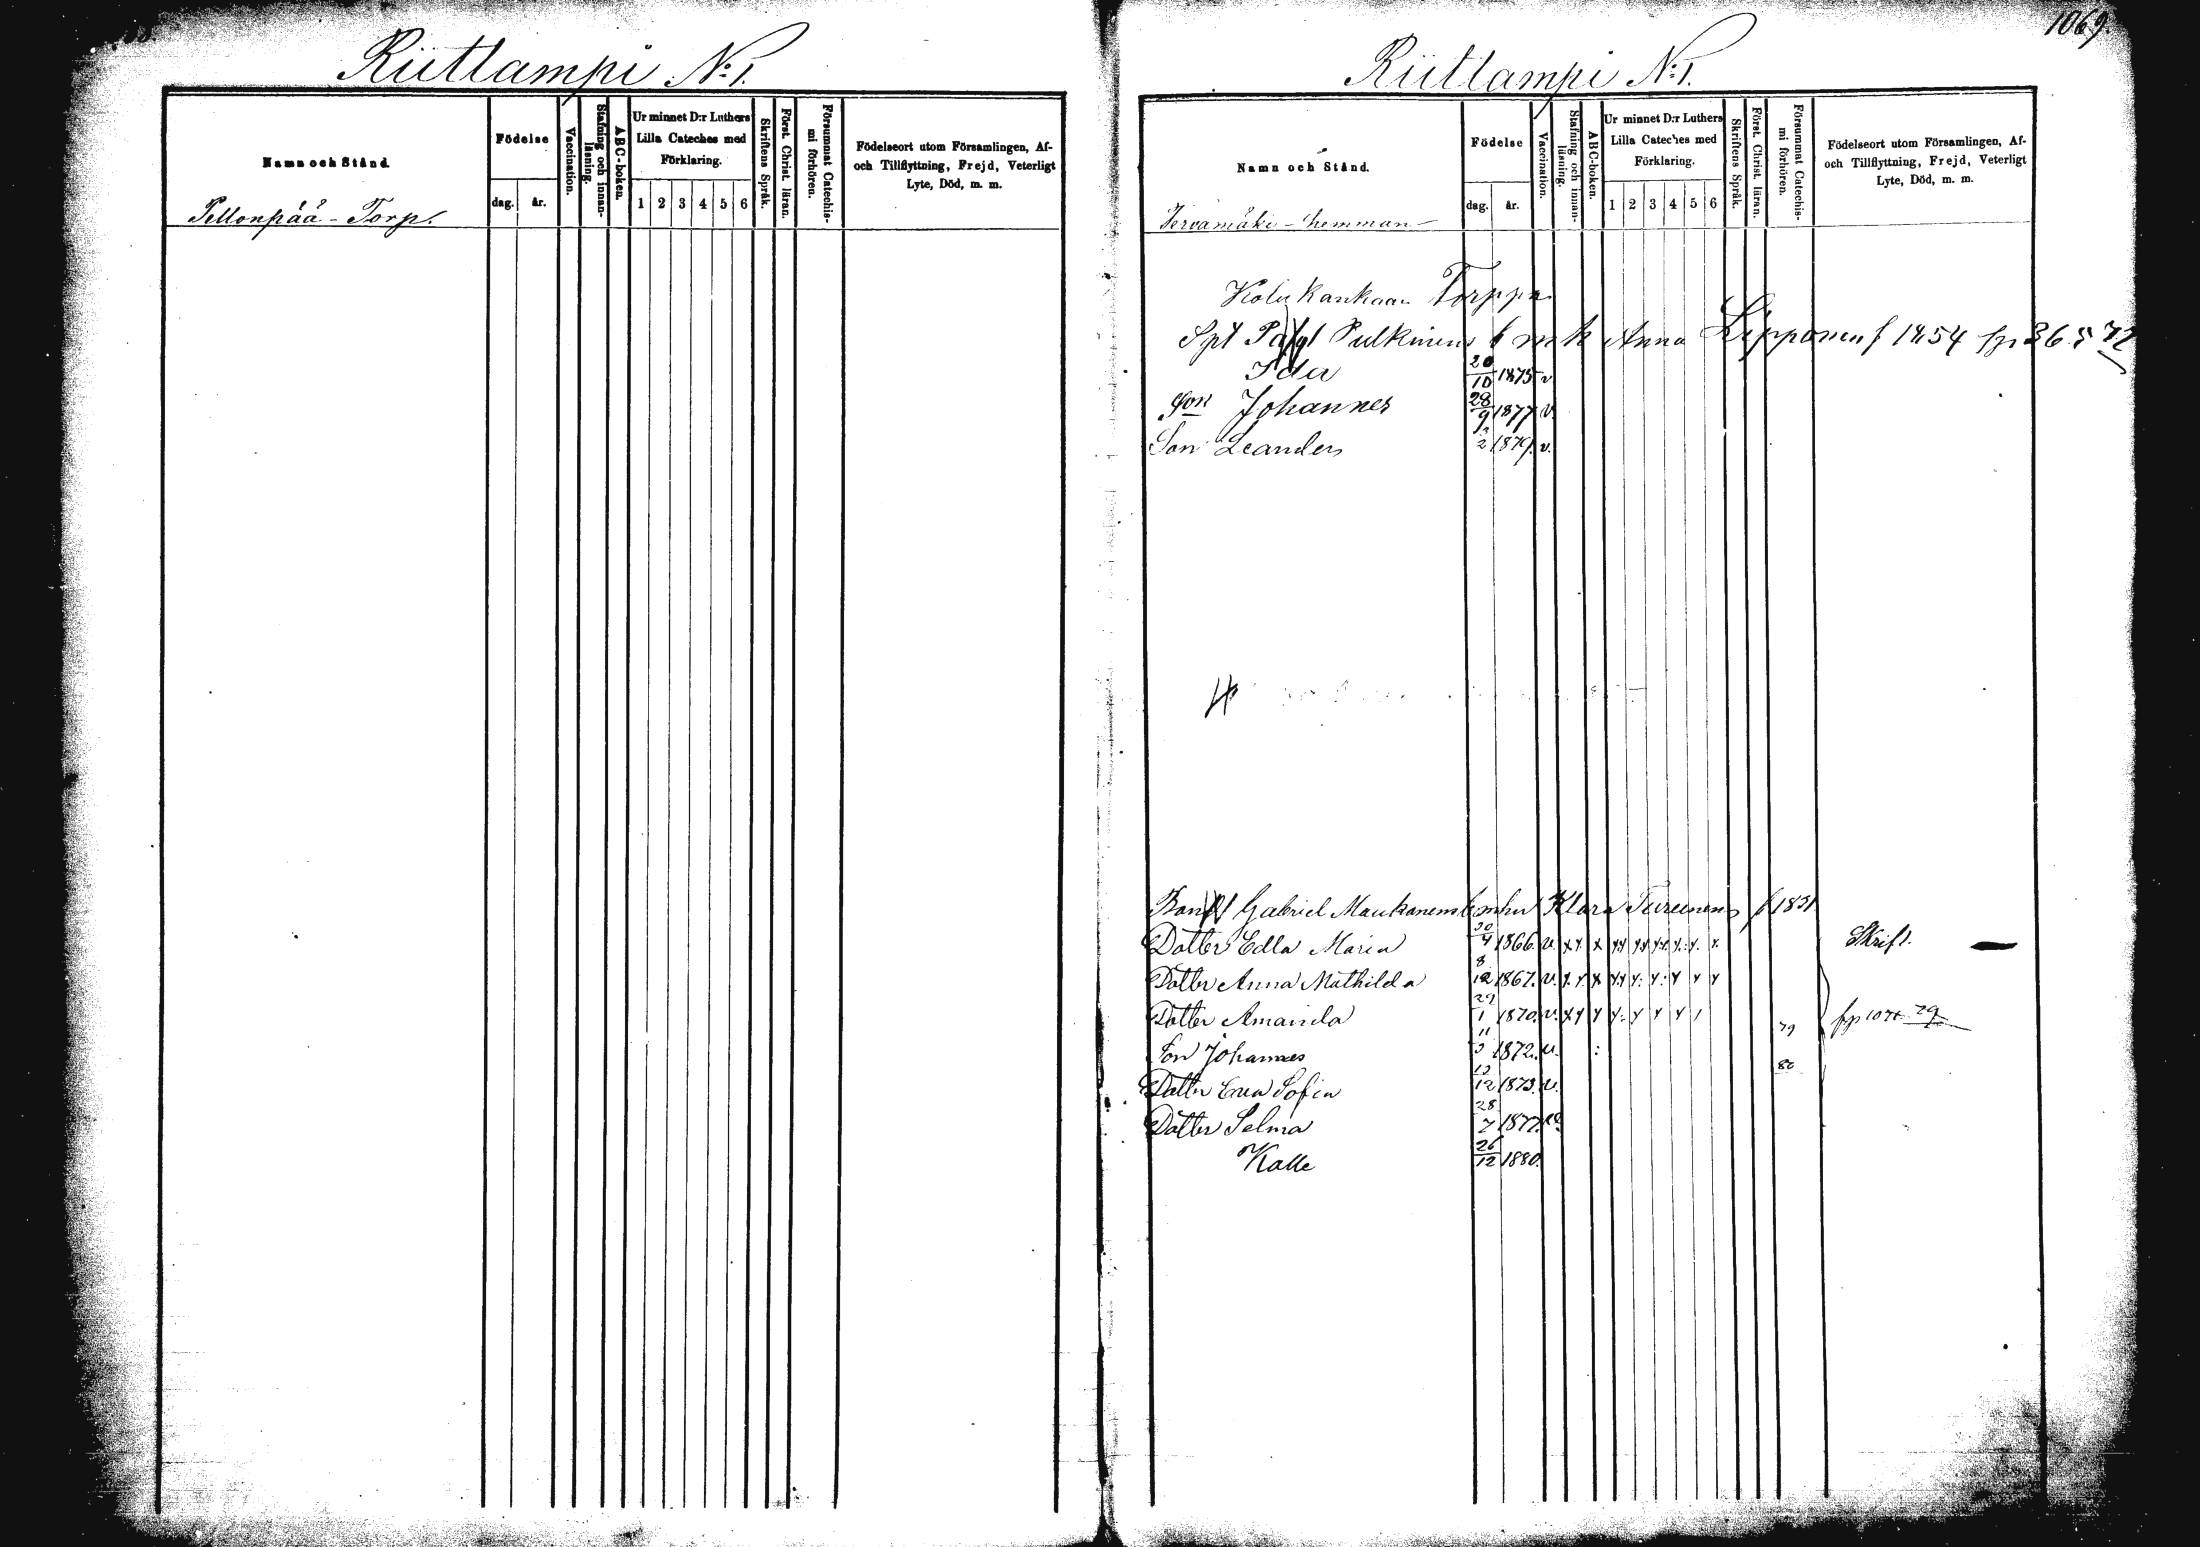 Riitlampi No 1.
Namn och Stånd.
Födelse
dag. år.
Vaccination.
Stafning och innan-läsning.
ABC-boken.
Ur minnet D:r Luthers
Lilla Cateches med
Förklaring.
1 2 3 4 5 6
Skriftens Språk.
Först. Christ. läran.
Försummat Catechis-
mi förhören.
Födelseort utom Församlingen, Af-
och Tillflyttning, Frejd, Veterligt
Lyte, Död, m. m.
Pellonpää - Torp.
1069.
Riitlampi No 1.
Namn och Stånd.
Födelse
dag. år.
Vaccination.
Stafning och innan-läsning.
ABC-boken.
Ur minnet D:r Luthers
Lilla Cateches med
Förklaring.
1 2 3 4 5 6
Skriftens Språk.
Först. Christ. läran.
Försummat Catechis-
mi förhören.
Födelseort utom Församlingen, Af-
och Tillflyttning, Frejd, Veterligt
Lyte, Död, m. m.
Tervamäki - hemman
Torppa
Pulkinens Anna Lipponen f 1854
Ida 20/10 1875 v
Son Johannes 28/9 1877 v.
Son Leander 2 1879. v.
Gabriel Maukonens Klara Turunens f 1831
Dotter Edla Maria 30/4 1866. v. x x x Skrift.
Dotter Anna Mathilda 8/12 1867. v.
Dotter Amanda 29/1 1870. v. 79
Son Johannes 11/3 1872. v. 80
Dotter Eva Sofia 12 1873. v.
Dotter Selma 28/7 1877. v.
Kalle 26/12 1880.